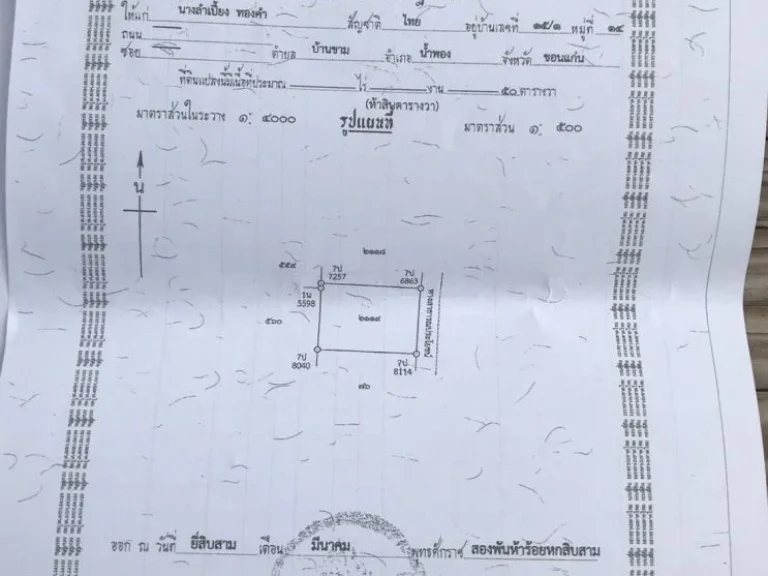 ให้แก่ นางลำเปี้ยง ทองคำ สัญชาติ ไทย อยู่บ้านเลขที่ ๑๕/๑ หมู่ที่ ๑๔
ถนน
ซอย ตำบล บ้านขาม อำเภอ น้ำพอง จังหวัด ขอนแก่น
ที่ดินแปลงนี้มีเนื้อที่ประมาณ ไร่ งาน ๕๐ ตารางวา
(ห้าสิบตารางวา)
มาตราส่วนในระวาง ๑: ๔๐๐๐ รูปแผนที่ มาตราส่วน ๑: ๕๐๐
น
๒๑๑๘
๕๕๔
7ป
7257
7ป
6863
1น
5598
๕๖๐
๒๑๑๙
ทางสาธารณประโยชน์
7ป
8040
7ป
8114
๗๖
ออก ณ วันที่ ยี่สิบสาม เดือน มีนาคม พุทธศักราช สองพันห้าร้อยหกสิบสาม